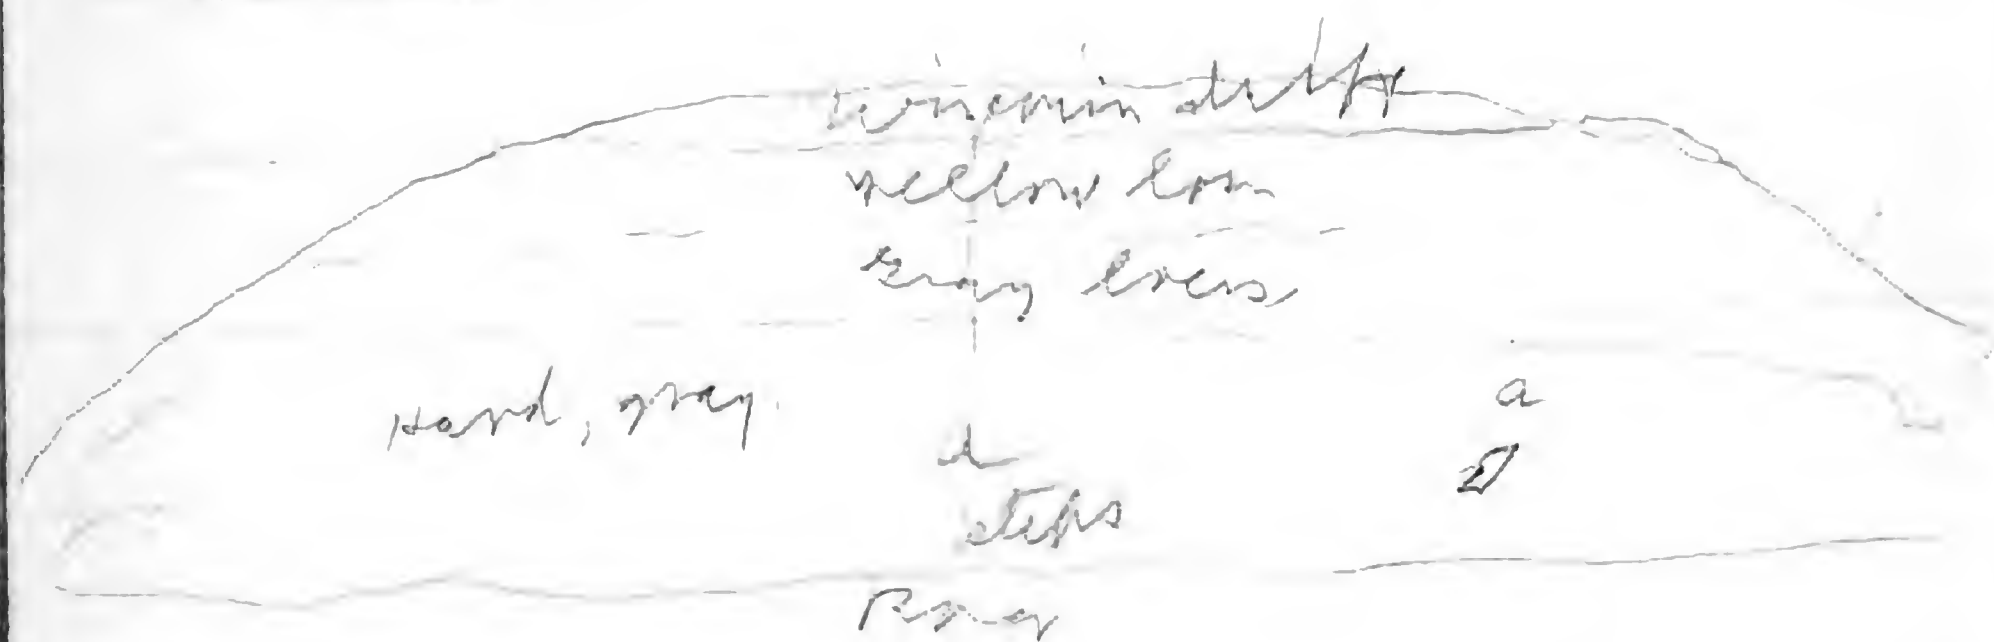 Wisconsin drift
yellow loess
gray loess
Hard, gray.
a
steps